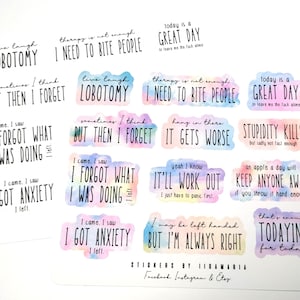 therapy is not enough,
I NEED TO BITE PEOPLE
today is a
GREAT DAY
to leave me the fuck alone
live laugh
LOBOTOMY
sometimes I think
BUT THEN I FORGET
I came, I saw
I FORGOT WHAT
I WAS DOING
I came, I saw
I GOT ANXIETY
I left
live laugh
LOBOTOMY
therapy is not enough,
I NEED TO BITE PEOPLE
today is a
GREAT DAY
to leave me the fuck alone
sometimes I think
BUT THEN I FORGET
hang in there
IT GETS WORSE
STUPIDITY KILLS
but sadly not fast enough
I came, I saw
I FORGOT WHAT
I WAS DOING
yeah I know
IT'LL WORK OUT
I just have to panic first
an apple a day will
KEEP ANYONE AWAY
if you throw it hard enough
I came, I saw
I GOT ANXIETY
I left
I may be left handed
BUT I'M ALWAYS RIGHT
that's enough
TODAYING
for today
STICKERS BY LIDAMARIA
Facebook Instagram & Etsy